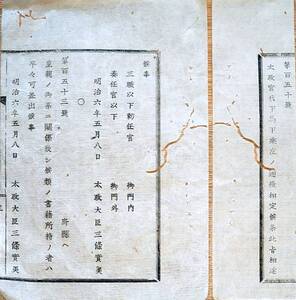 第百五十號
太政官坂下馬下乗左ノ通被相定候条此旨相達
候事
三職以下勅任官 御門内
奏任官以下 御門外
明治六年五月八日 太政大臣三條實美
○
第百五十三號
府縣ヘ
皇親ノ御系ニ關係致シ候類ノ書籍所持ノ者ハ
早々可差出候事
明治六年五月八日 太政大臣三條實美